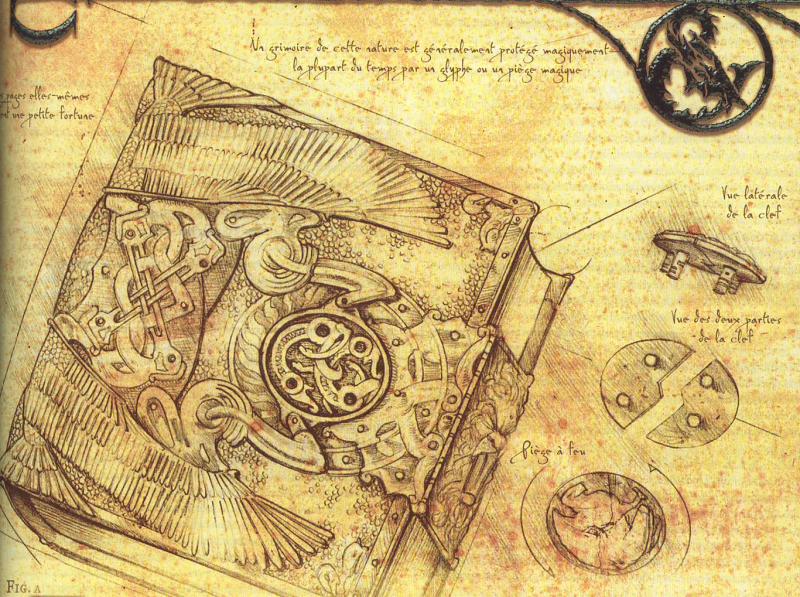 Un grimoire de cette nature est généralement protégé magiquement
la plupart du temps par un glyphe ou un piège magique
pages elles-mêmes
une petite fortune
Vue latérale
de la clef
Vue des deux parties
de la clef
Piège à feu
FIG. A